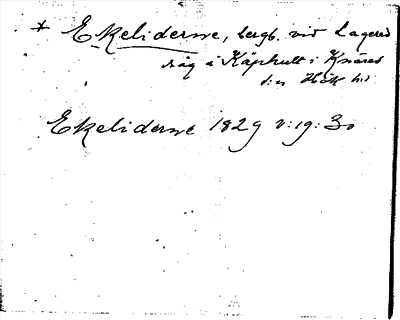 * Ekeliderne, bergb. vid Lagered
råg å Käphult i Knäred
s:n Hök hd
Ekeliderne 1829 v:19:30